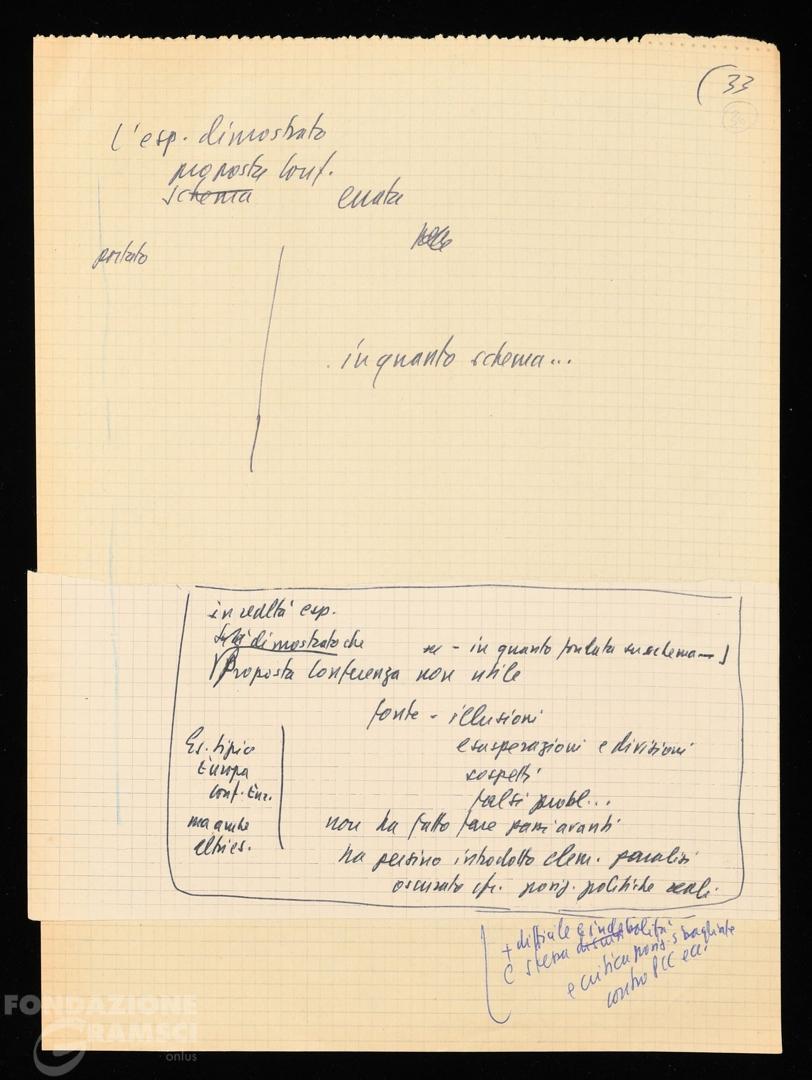 (33
L'esp. dimostrato
proposta Conf.
schema errata
portato
in quanto schema...
in realtà esp.
dimostrato che
- in quanto fondata su schema
Proposta Conferenza non utile
fonte - illusioni
Es. tipico
esasperazioni e divisioni
Europa
sospetti
Conf. Eur.
falsi probl...
ma anche
non ha fatto fare passi avanti
altri es.
ha persino introdotto elem. paralisi
oscurato posiz. politiche reali.
+ difficile e
e stessa
e critica posiz. sbagliate
contro PCC ecc.
FONDAZIONE
GRAMSCI
onlus